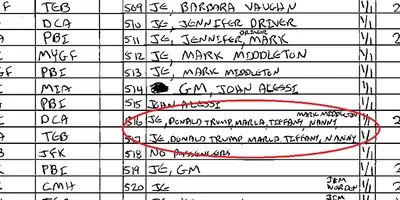 TEB 509 JE, BARBARA VAUGHN 1/1
DCA 510 JE, JENNIFER DRIVER 1/1
PBI 511 JE, JENNIFER, DRIVER MARK 1/1 2
MYGF 512 JE, MARK MIDDLETON 1/1
GF PBI 513 JE, MARK MIDDLETON 1/1
I MIA 514 GM, JOAN ALESSI 1/1
PBI 515 JOAN ALESSI 1/1
I DCA 516 JE, DONALD TRUMP, MARLA, TIFFANY, NANNY MARK MIDDLETON 1/1 2
A TEB 517 JE, DONALD TRUMP, MARLA, TIFFANY, NANNY 1/1
B JFK 518 NO PASSENGERS 1/1
K PBI 519 JE, GM 1/1 2
CMH 520 JE JEM WORDEN 1/1